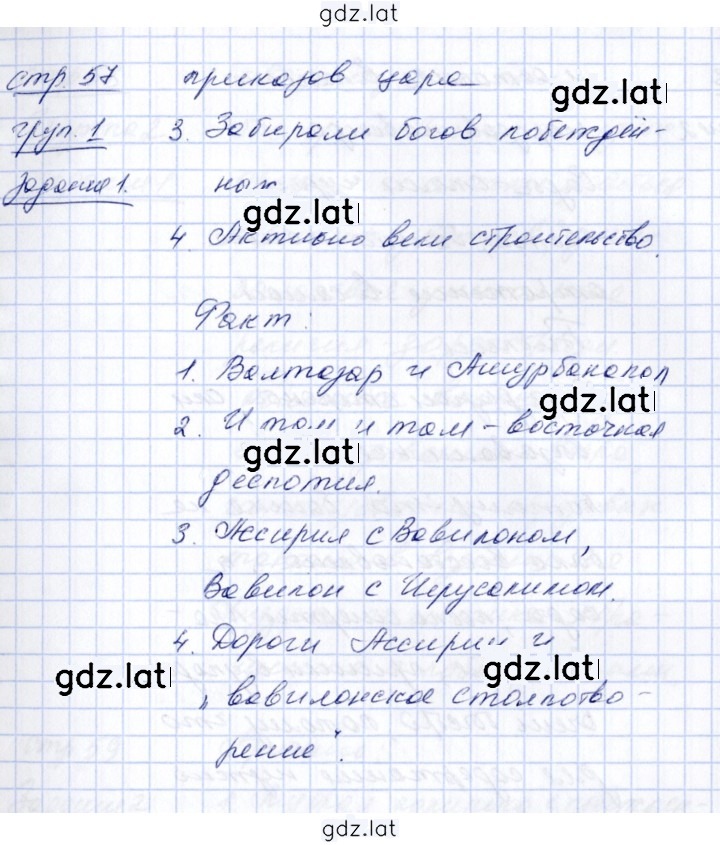 gdz.lat
стр. 57 приказов царя
gdz.lat
груп. 1 3. Забирали богов побеждён-
Задание 1. ных
gdz.lat
4. Активно вели строительство.
Факт:
1. Валтазар и Ашурбанапал
gdz.lat
2. И там и там - восточная
gdz.lat
деспотия.
3. Ассирия с Вавилоном,
Вавилон с Иерусалимом.
4. Дороги Ассирии и
gdz.lat
gdz.lat
„вавилонское столпотво-
рение".
gdz.lat